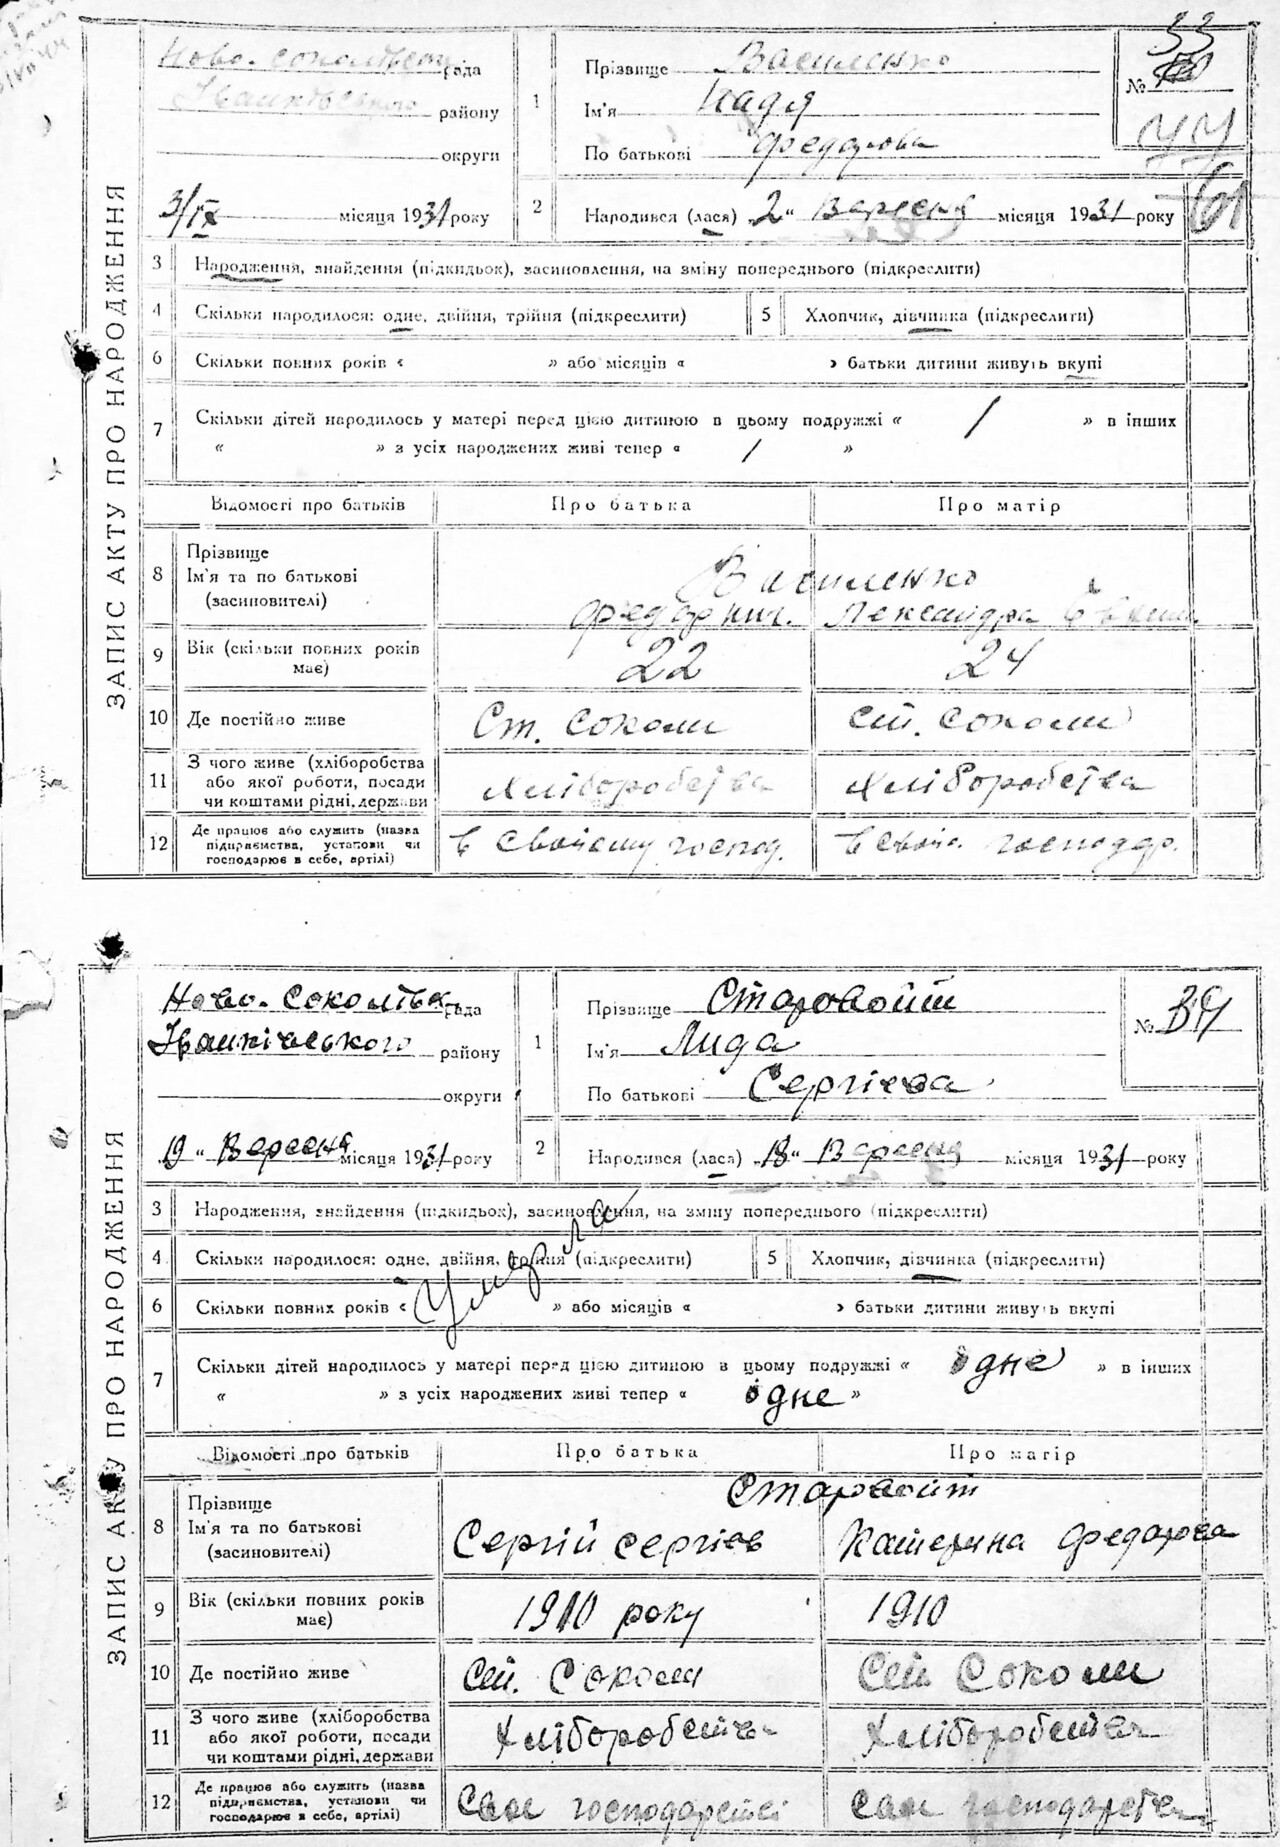 ЗАПИС АКТУ ПРО НАРОДЖЕННЯ
Ново-соколівськ рада
Іванківського району
округи
3/ІХ місяця 1931 року
1 Прізвище Василенко
Ім'я Надя
По батькові Федорова
№ 33
2 Народився (лася) 2 " Вересня місяця 1931 року
3 Народження, знайдення (підкидьок), засиновлення, на зміну попереднього (підкреслити)
4 Скільки народилося: одне, двійня, трійня (підкреслити) 5 Хлопчик, дівчинка (підкреслити)
6 Скільки повних років « » або місяців « » батьки дитини живуть вкупі
7 Скільки дітей народилось у матері перед цією дитиною в цьому подружжі « / » в інших
« » з усіх народжених живі тепер « / »
Відомості про батьків Про батька Про матір
8 Прізвище
Ім'я та по батькові
(засиновителі)
Василенко
Федор Лександра
9 Вік (скільки повних років має) 22 24
10 Де постійно живе Ст. Соколи ст. Соколи
11 З чого живе (хліборобства
або якої роботи, посади
чи коштами рідні, держави
Хліборобства Хліборобства
12 Де працює або служить (назва
підприємства, установи чи
господарює в себе, артілі)
в своєму господ. в своєм. господар.
ЗАПИС АКТУ ПРО НАРОДЖЕННЯ
Ново-Соколівськ рада
Іванківського району
округи
19 " Вересня місяця 1931 року
1 Прізвище Старовойт
Ім'я Лида
По батькові Сергієва
№ 34
2 Народився (лася) 18 " Вересня місяця 1931 року
3 Народження, знайдення (підкидьок), засиновлення, на зміну попереднього (підкреслити)
4 Скільки народилося: одне, двійня, трійня (підкреслити) 5 Хлопчик, дівчинка (підкреслити)
Умерла
6 Скільки повних років « » або місяців « » батьки дитини живуть вкупі
7 Скільки дітей народилось у матері перед цією дитиною в цьому подружжі « одне » в інших
« » з усіх народжених живі тепер « одне »
Відомості про батьків Про батька Про матір
8 Прізвище
Ім'я та по батькові
(засиновителі)
Старовойт
Сергій Сергієв Катерина Федорова
9 Вік (скільки повних років має) 1910 року 1910
10 Де постійно живе Ст. Соколи Ст Соколи
11 З чого живе (хліборобства
або якої роботи, посади
чи коштами рідні, держави
Хліборобства Хліборобства
12 Де працює або служить (назва
підприємства, установи чи
господарює в себе, артілі)
Своє господарстві своє господарства